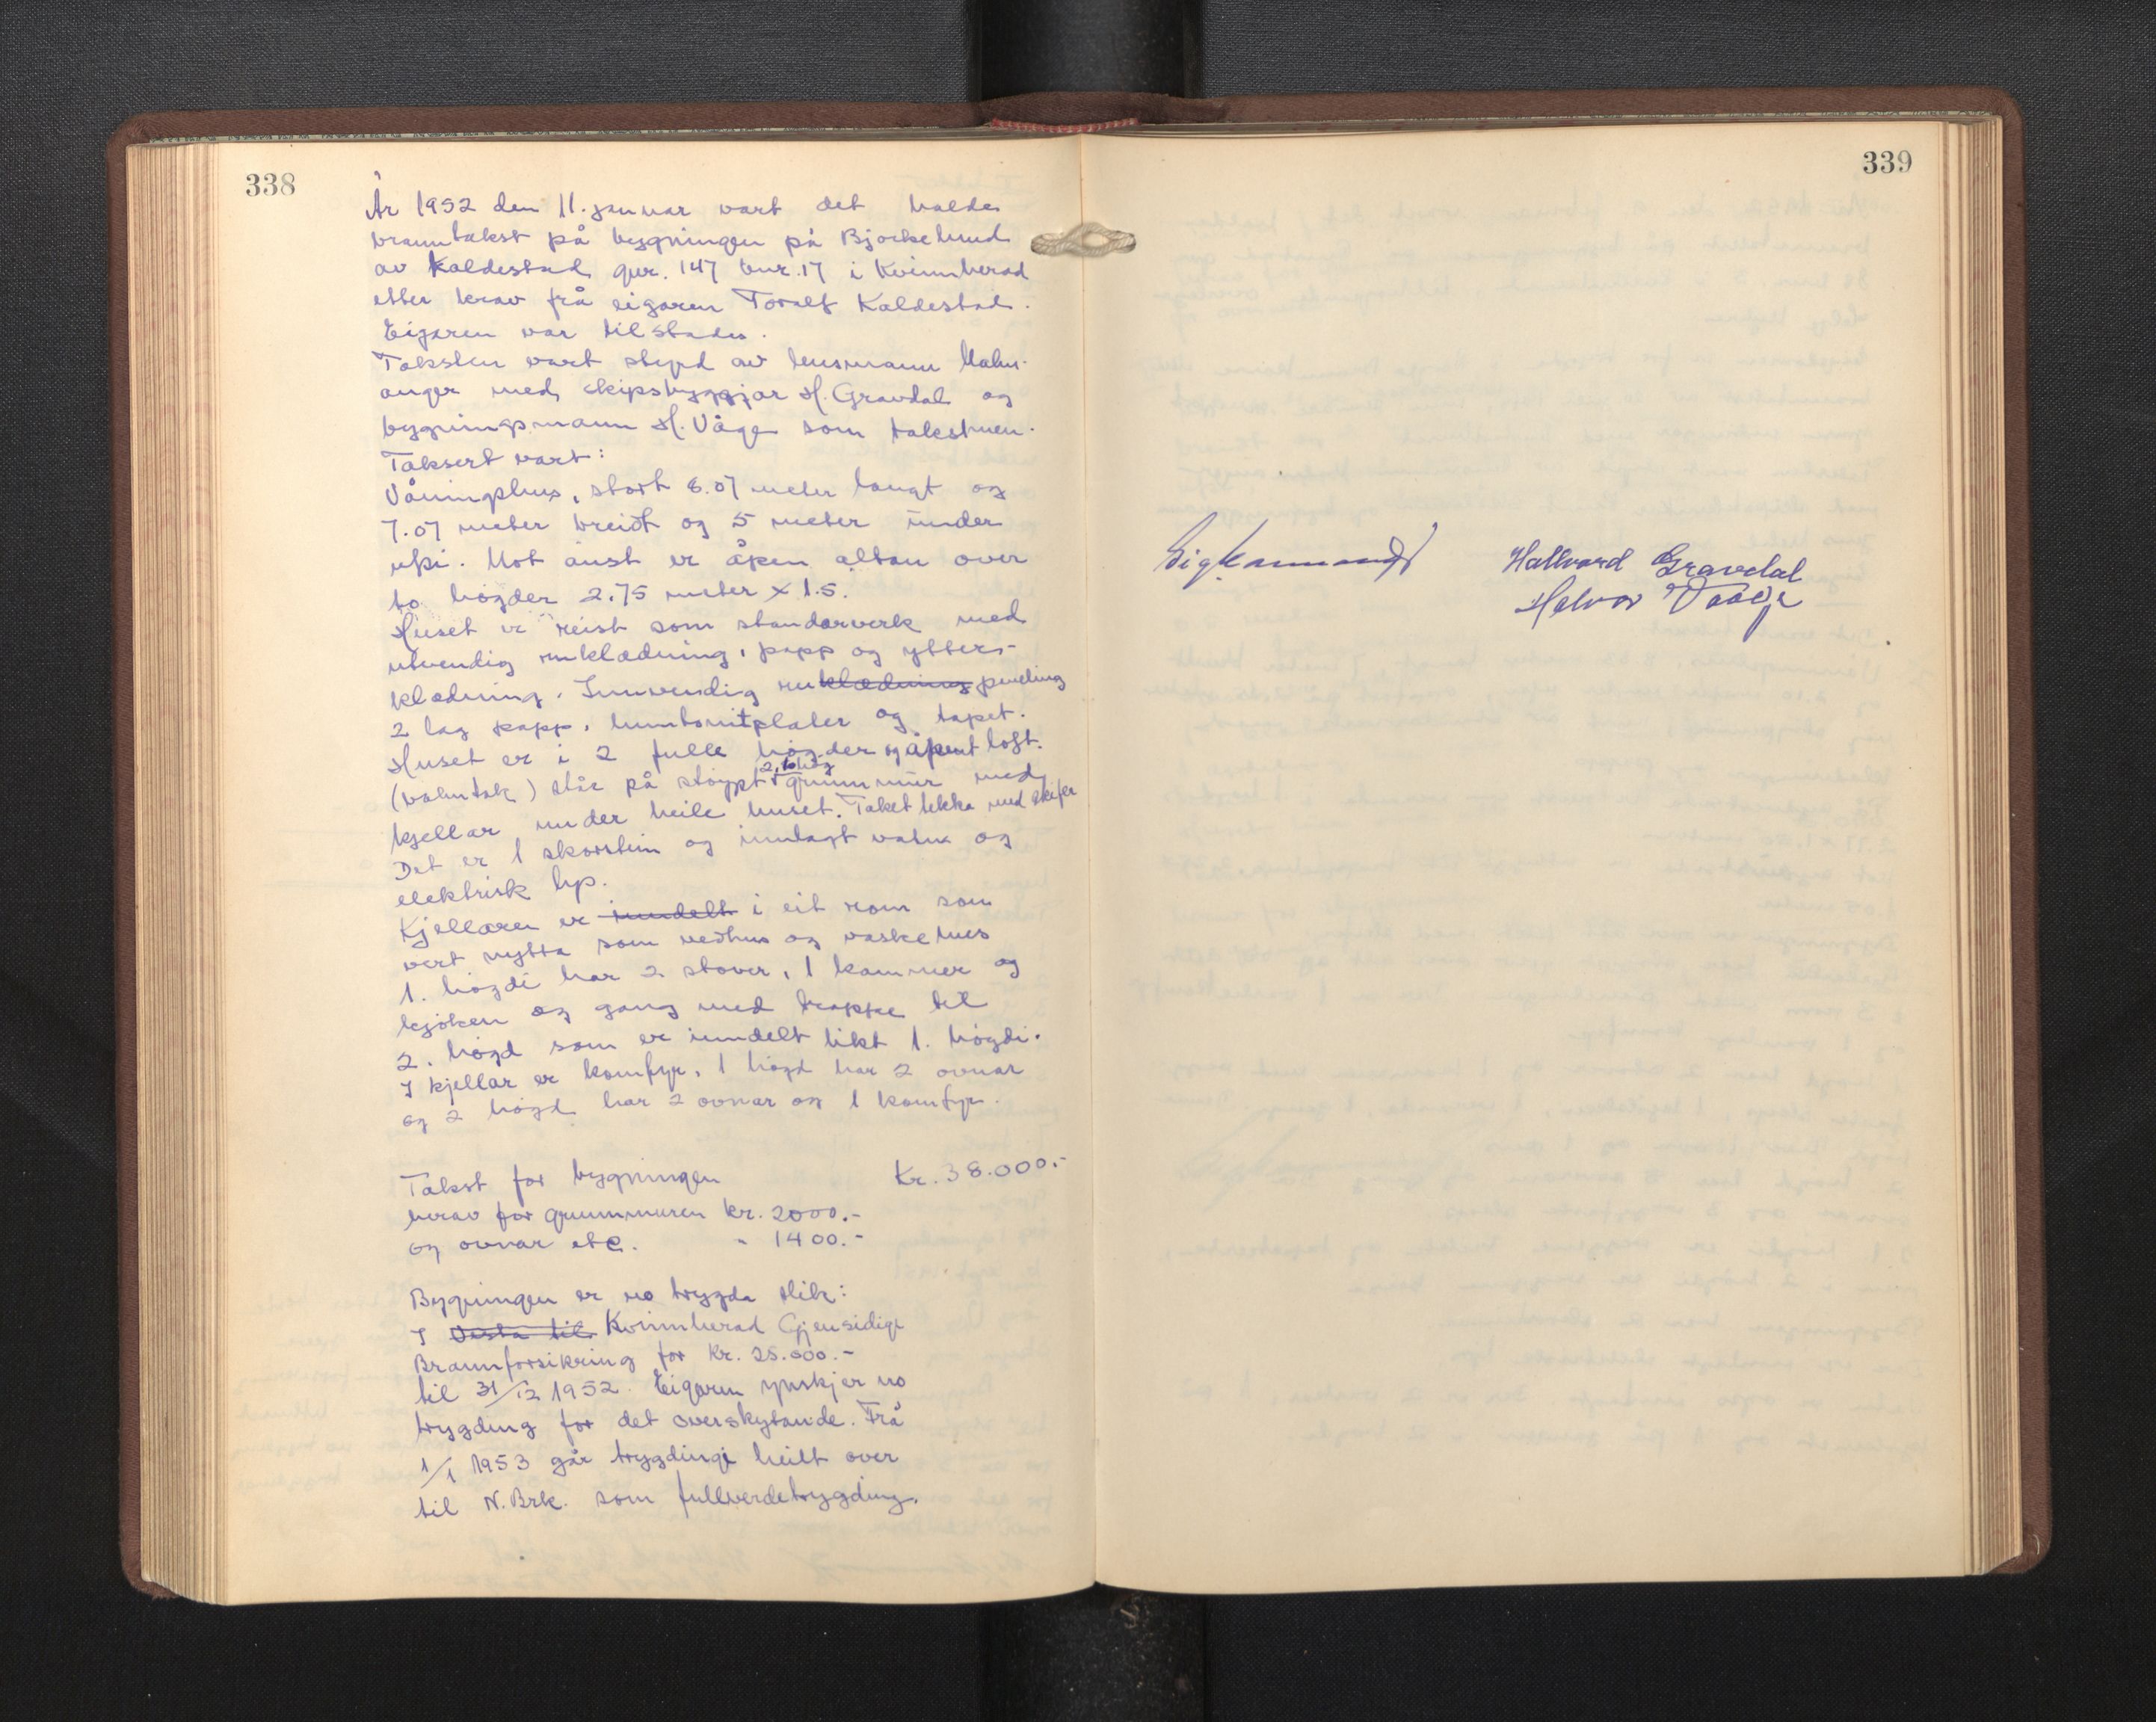 338
År 1952 den 11. januar vart det halde
branntakst på bygningen på Bjørkelund
av Kaldestad gnr. 147 bnr. 17 i Kvinnherad
etter krav frå eigaren Toralf Kaldestad.
Eigaren var tilstades.
Taksten vart styrd av lensmann Malm-
anger med skipsbyggjar H. Gravdal og
bygningsmann H. Våge som takstmen.
Taksert vart:
Våningshus, stort 8.07 meter langt og
7.07 meter breidt og 5 meter under
upsi. Mot aust er åpen altan over
to høgder 2.75 meter x 1.5.
Huset er reist som standarverk med
utvendig ruklædning, papp og ytters-
klædning. Innvendig ruklædning paneling
2 lag papp, huntonitplater og tapet.
Huset er i 2 fulle høgder og åpent loft.
(valmtak) står på støypt grunnmur med
kjellar under heile huset. Taket tekka med skifer
Det er 1 skorstein og innlagt vatn og
elektrisk lys.
Kjellaren er inndelt i eit rom som
vert nytta som vedhus og vaskehus
1. høgdi har 2 stover, 1 kammer og
kjøken og gang med trappe til
2. høgd som er inndelt likt 1. høgdi.
I kjellar er komfyr, 1 høgd har 2 ovnar
og 2 høgd har 2 ovnar og 1 komfyr.
Takst for bygningen Kr. 38.000.-
herav for grunnmuren Kr. 2000.-
og ovnar etc. " 1400.-
Bygningen er no trygda slik:
I Kvinnherad Gjensidige
Brannforsikring for Kr. 25.000.-
til 31/12 1952. Eigaren ynskjer no
trygding for det overskytande. Frå
1/1 1953 går trygdingi heilt over
til N. Brk. som fullverdetrygding.
339
Hallvard Gravdal
Halvor Vaage